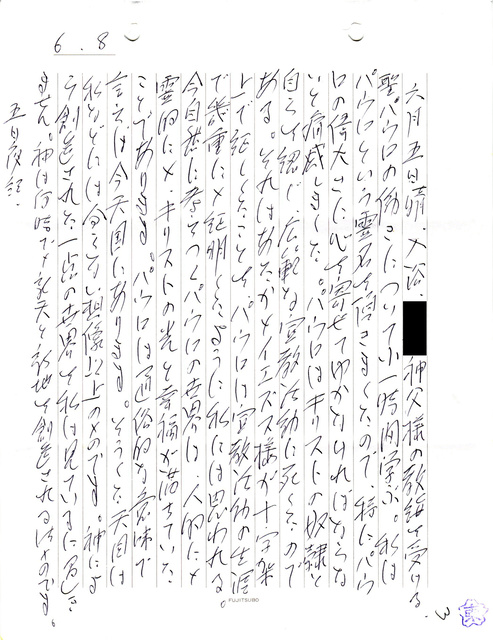 6.8
六月五日晴、入浴、神父様の教誨を受ける。
聖パウロの働きについて小一時間学ぶ。私は
パウロという霊名を信さましたので、特にパウ
ロの偉大さに心を寄せてゆかなければならな
いと痛感しました。パウロはキリストの奴隷と
自らも認じ、広範な宣教活動に死したので
ある。それはあたかもイエズス様が十字架
上で証したことをパウロは宣教活動の生涯
で幾重にも証明したように私には思われる。
今自然に考えつくパウロの世界は、人的にも
霊的にも、キリストの光と幸福が満ちていた
ことであります。パウロは通俗的な意味で
言えば今天国にあります。そうした天国は
私などには分らない想像以上のものです。神によ
り創造された一点の世界を私は見ているに過ぎ
ません。神は何時でも新天と新地を創造されるはずのです。
五日夜記.
3
FUJITSUBO